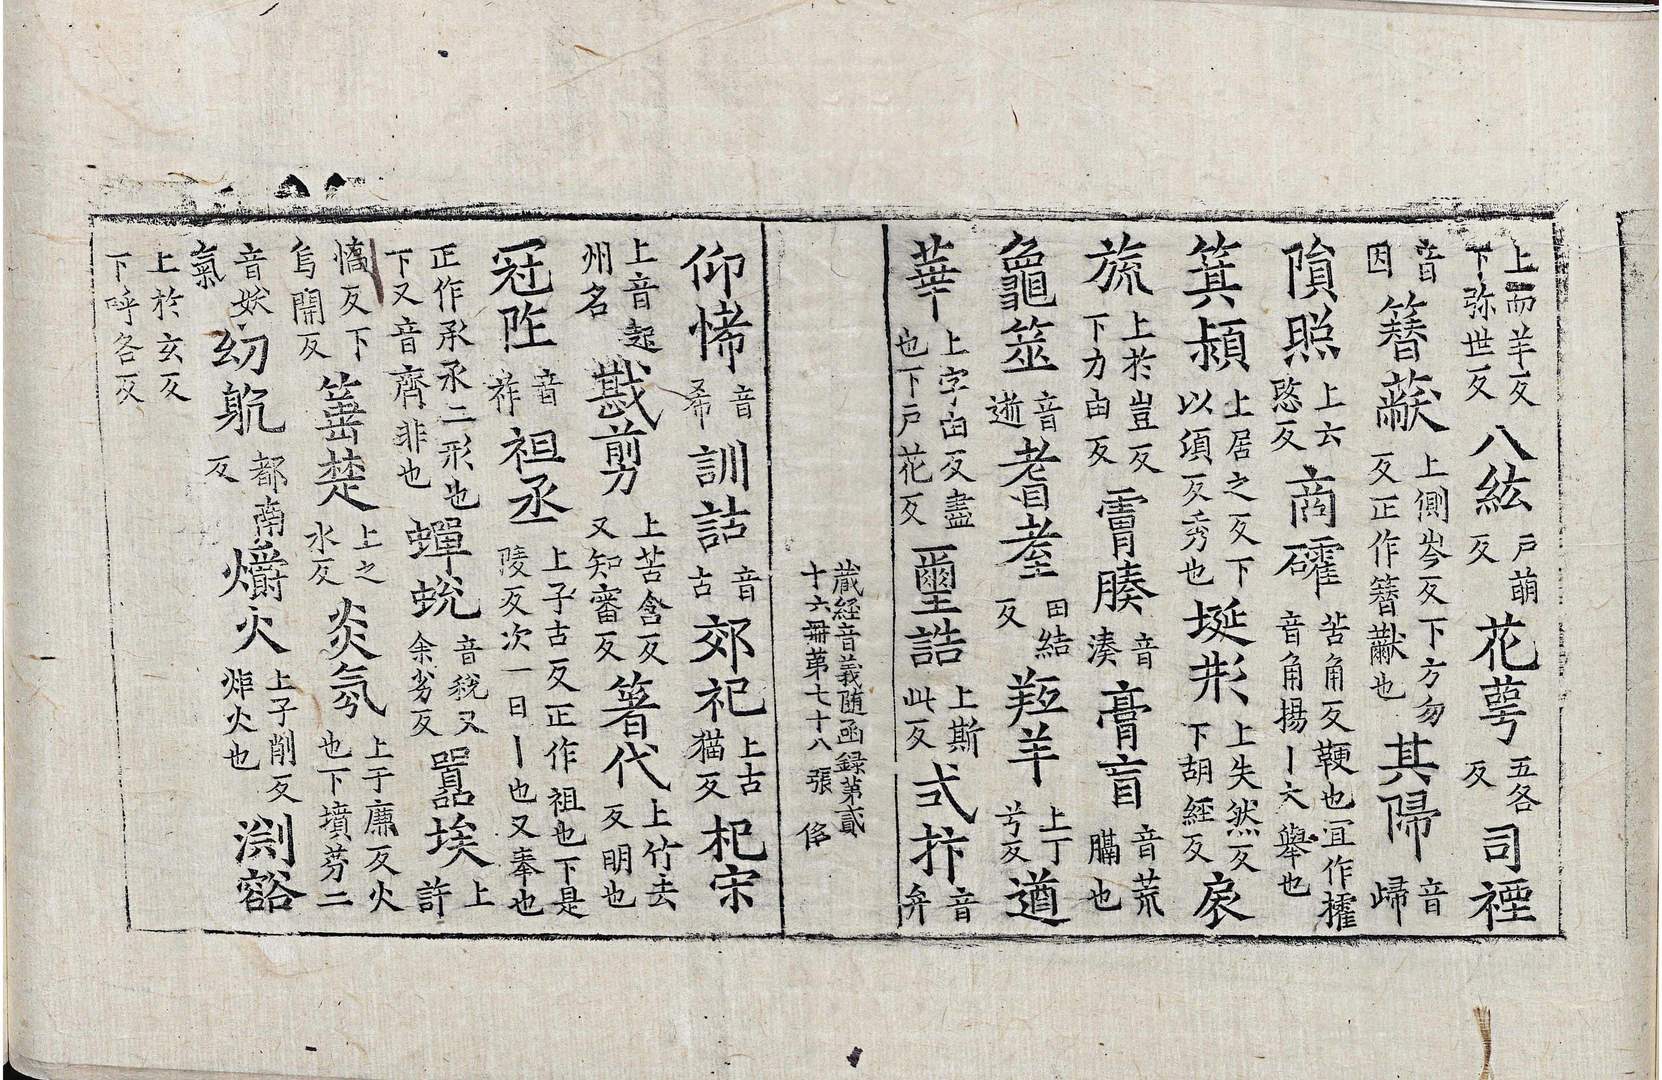 上而羊反下弥世反八紘戶萌反花萼五各反司禋
音因簮蔽上側岑反下方勿反正作簮黻也其㷌音歸
隕照上云愍反商㩁苦角反鞕也冝作搉音角揚丨大舉也
箕潁上居之反下以湏反秀也埏形上失然反下胡經反扆
旒上於豈反下力由反霄腠音湊膏肓音荒膈也
龜筮音逝耆耋田結反羝羊上丁兮反遒
華上字由反盡也下戸花反璽誥上斯此反弌抃音弁
蔵經音義随函録第貳
十六冊第七十八張 俢
仰悕音希訓詁音古郊祀上古猫反杞宋
上音起州名戡剪上苦含反又知審反著代上竹去反明也
冠阼音祚祖丞上子古反正作祖也下是陵反次一日丨也又奉也
正作承氶二形也下又音齊非也蟬蛻音稅又余劣反嚣埃上許
憍反下烏開反箠楚上之水反炎氛上于廉反火也下墳芬二
音妖氣㓜躭都南反爝火上子削反炬火也渊谿
上於玄反下呼各反